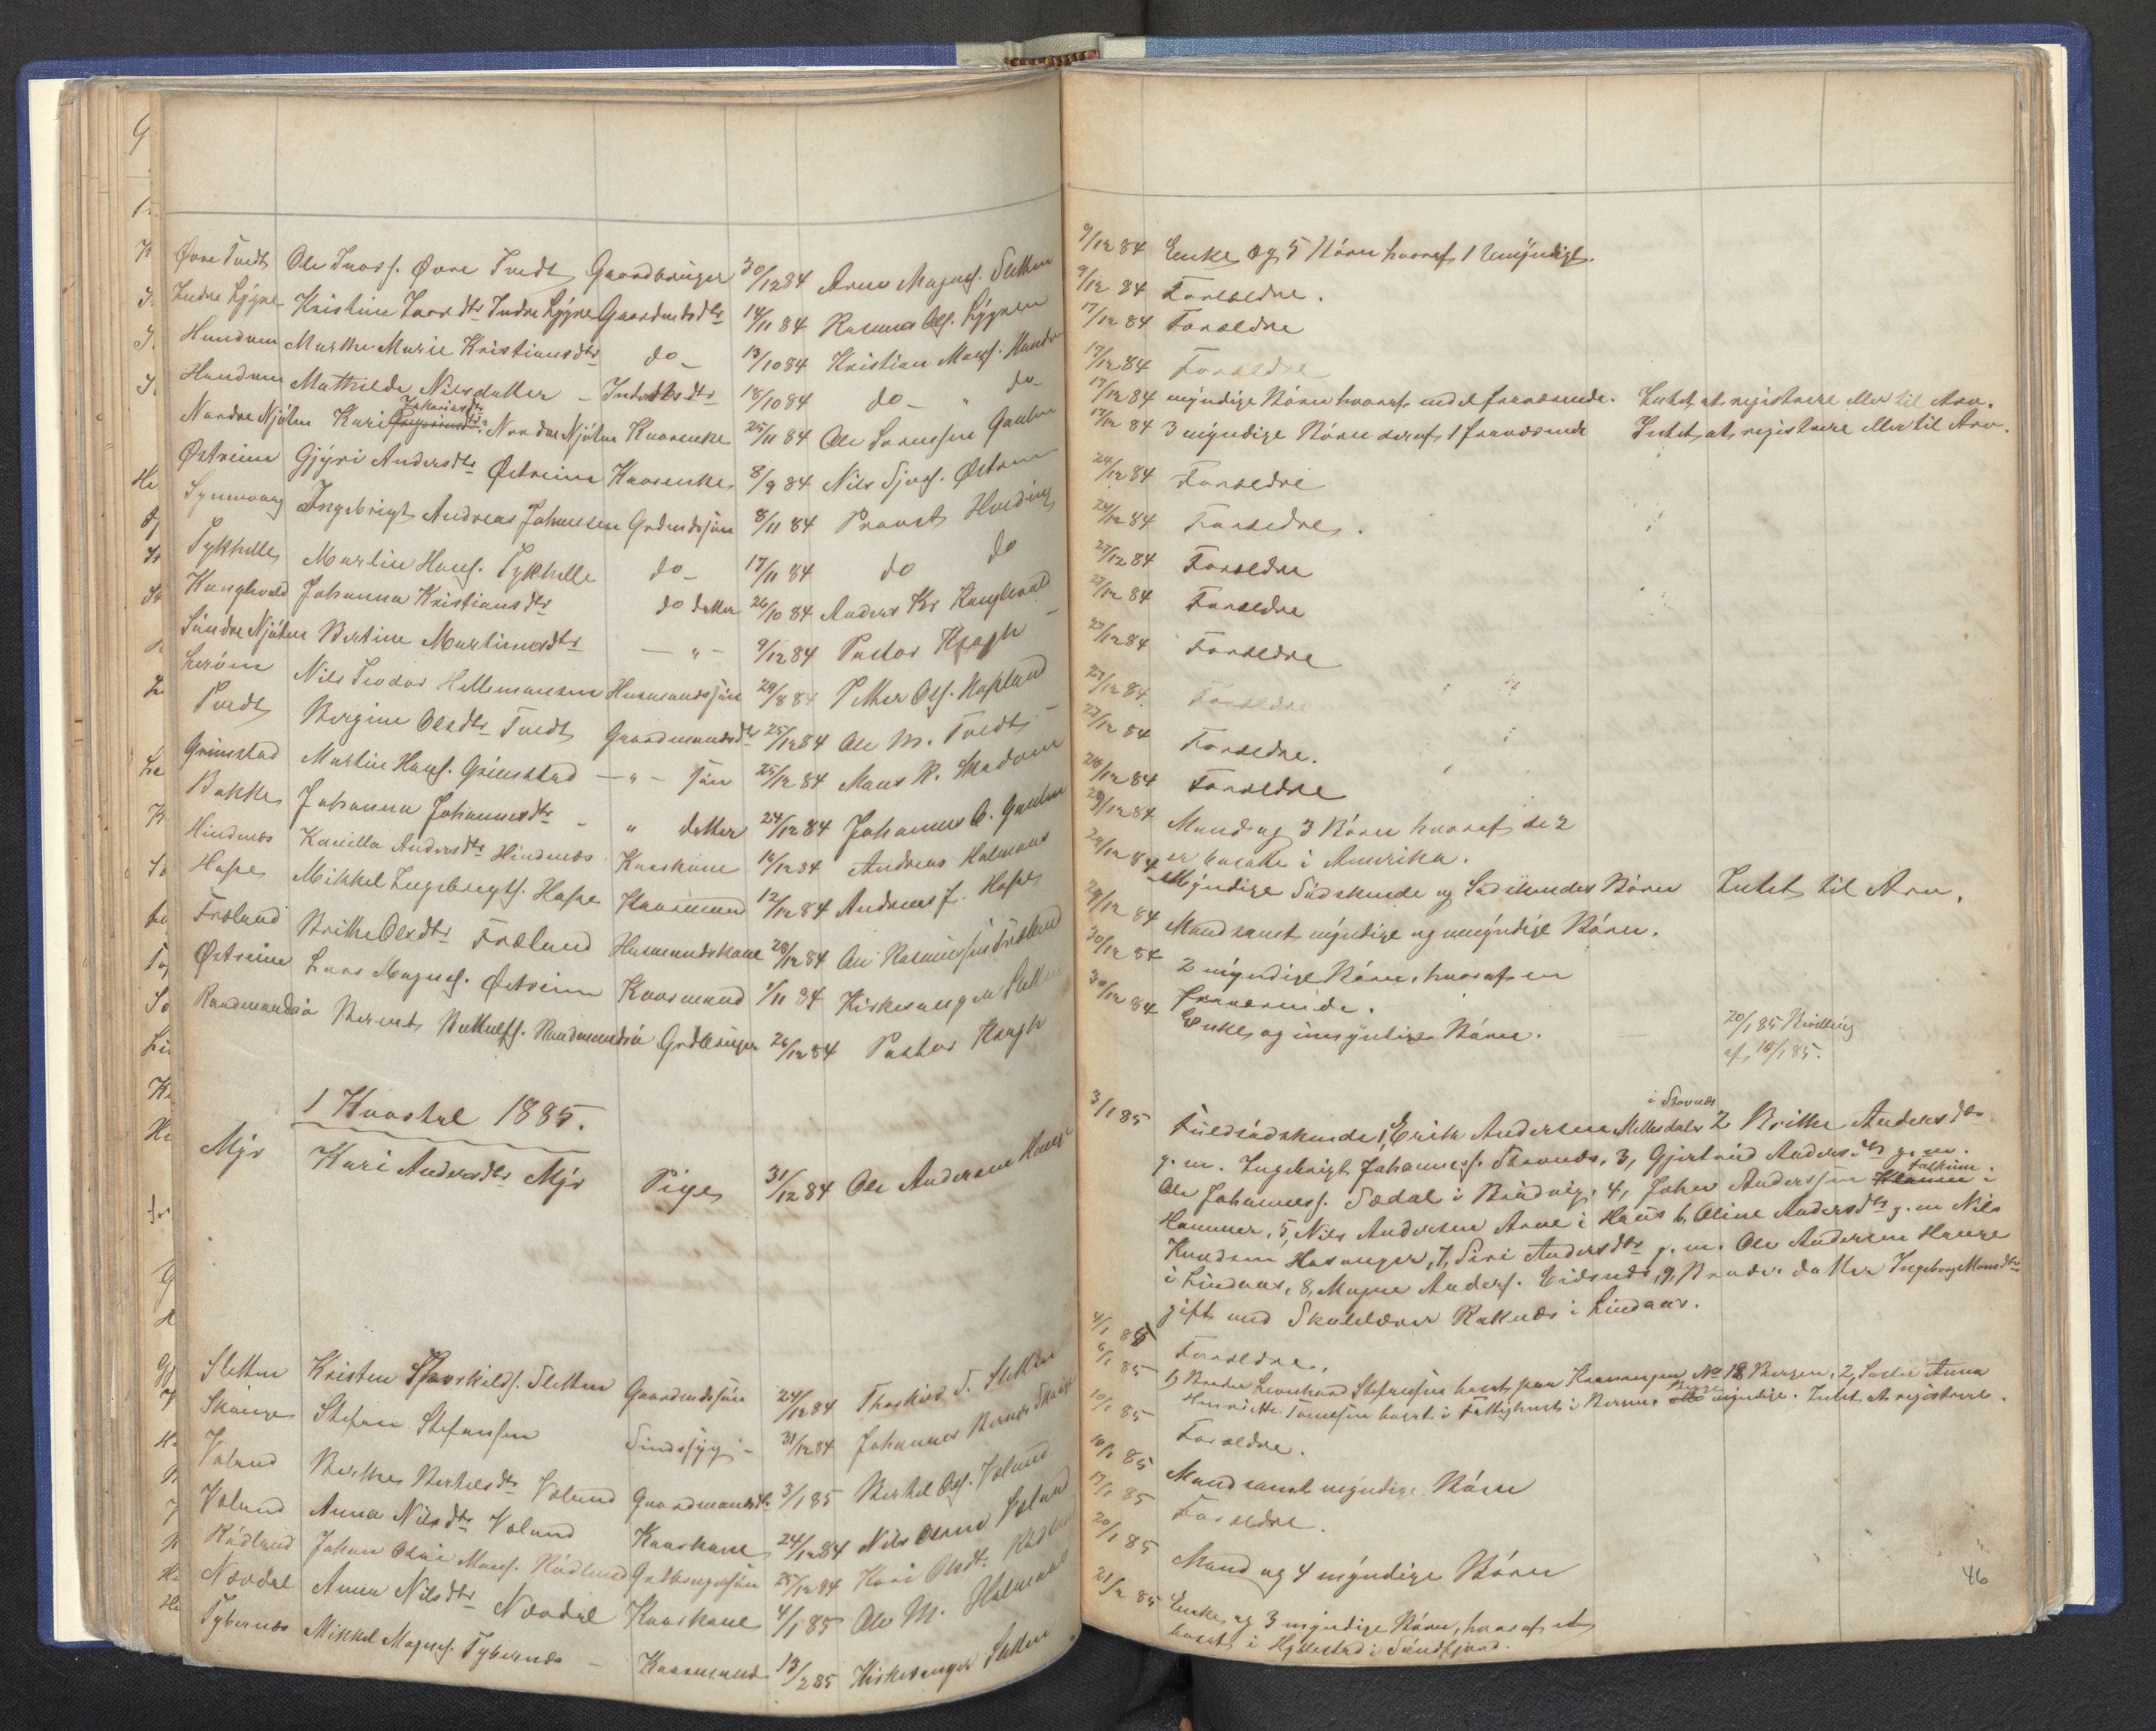 Øvre Tvedt Ole Ivers. Øvre Tvedt Gaardbruger 30/12 84 Arne Magns. Sletten
Indre Lygre Kristine Larsdtr Indre Lygre Gaardmdsdtr 14/11 84 Rasmus Ols. Lygren
Hundven Marthe Marie Kristiansdtr do 13/10 84 Kristian Mons.
Hundven Mathilde Nilsdatter - Inderstsdtr 18/10 84 do " do
Nordre Njøten Kari Zakariasdtr Nordre Njøten Kaarenke 25/11 84 Ole
Østreim Gjyri Andersdtr Østreim Kaarenke 8/9 84 Nils
Synnevaag Ingebrigt Andreas Johannesen Grdmdssøn 8/11 84 Provst Hvoding
Tykhelle Martin Hans. Tykhelle do 17/11 84 do do
Kanglevold Johanna Kristiansdtr do datter 26/10 84 Anders Kr Kanglevold
Søndre Njøten Bertine Martinusdtr - " - 9/12 84 Pastor Kragh
Lerøen Nils Teodor Hellemansen Husmandssøn 29/8 84 Petter Ols.
Tvedt Bergine Olsdtr Tvedt Gaardmandsdtr 25/12 84 Ole M. Tvedt
Grimstad Martin Hans. Grimstad - " - søn 25/12 84 Mons R.
Bakke Johanna Johannesdtr - " datter 24/12 84 Johannes
Hindenes Kanilla Andersdtr Hindenes Kaarkone 16/12 84 Andreas Halvorsen
Hope Mikkel Ingebrigts. Hope Kaarmand 12/12 84 Andreas J. Hope
Frøland Brithe Olsdtr Frøland Husmandskone 28/12 84 Ole Rasmussen Frøland
Østreim Lars Magns. Østreim Kaarmand 1/11 84 Kirkesanger Sletten
Randmandsø Bernt Botholfs. Randmandsø Grdbruger 26/12 84 Pastor Kragh
1 Kvartal 1885.
Mjøs Kari Andersdtr Mjøs Pige 31/12 84 Ole Andersen Hauge
Sletten Kristen Thorskilds. Sletten Gaardmdssøn 24/12 84 Thorskild S. Sletten
Skauge Stefan Stefansen Sindssyg - 31/12 84 Johannes
Volund Berthe Bertelsdtr Volund Gaardmandsdtr 3/1 85 Bertel Ols. Volund
Volund Anna Nilsdtr Volund Kaarkone 24/12 84 Nils Olsen Volund
Rødland Johan Olai Mons. Rødland Grdbrugersøn 25/12 84 Kari Olsdt. Rødland
Nævdal Anna Nilsdtr Nævdal Kaarkone 4/1 85 Ole M.
Tybernes Mikkel Magns. Tybernes - Kaarmand 13/2 85 Kirkesanger Sletten
9/12 84 Enke og 5 Børn hvoraf 1 Umyndigt.
9/12 84 Forældre.
17/12 84 Forældre
17/12 84 Forældre
17/12 84 myndige Børn hvoraf med et fraværende. Intet at registrere eller til Arv.
17/12 84 3 myndige Børn deraf 1 fraværende Intet at registrere eller til Arv.
24/12 84 Forældre
24/12 84 Forældre.
27/12 84 Forældre
27/12 84 Forældre
27/12 84 Forældre
27/12 84 Forældre
27/12 84 Forældre.
28/12 84 Forældre
29/12 84 Mand og 3 Børn hvoraf de 2
er bosatte i Amerika.
29/12 84 Myndige Sødskende og Sødskendes Børn Intet til Arv.
29/12 84 Mand samt myndige og umyndige Børn.
30/12 84 2 myndige Børn, hvoraf en
fraværende.
30/12 84 Enke og umyndige Børn.
20/1 85 Bevilling
af 10/1 85.
3/1 85 Fuldsødskende 1, Erik Andersen Mellesdalen i Stavnæs 2 Brithe Andersdtr
g. m. Ingebrigt Johanness. Stavnæs, 3, Gjertrud Andersdtr g. m.
Ole Johanness. Dedal i Brudvig, 4, Johan Andersen
Hammer, 5, Nils Andersen Arne i Haus 6, Oline Andersdtr g. m Nils
Knudsen Hosanger, 7, Siri Andersdtr g. m. Ole Andersen Hauge
i Lindaas, 8, Magne Anders. Eidsnes, 9, Broder datter Ingeborg Monsdtr
gift med Skolelærer Raknes i Lindaas.
4/1 85 Forældre.
6/1 85 1, Broder Leonhard Stefansen bosat paa No 18 Bergen, 2, Søster Anna
Henriette bosat i Fattighuset i Bergen. Begge myndige. Intet at registrere.
10/1 85 Forældre.
10/1 85 Mand samt myndige Børn
17/1 85 Forældre.
20/1 85 Mand og 4 myndige Børn
21/2 85 Enke og 3 myndige Børn, hvoraf et
bosat i Hyllestad i Søndfjord.
46